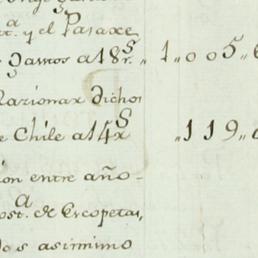 a
t. y el Pasaxe
Gamos a 18 r.s " 1 " 005 "
Razionar dichos
e Chile a 14 r.s " 119 "
ion entre año-
a
ost. de Escopetas,
dos asimimo